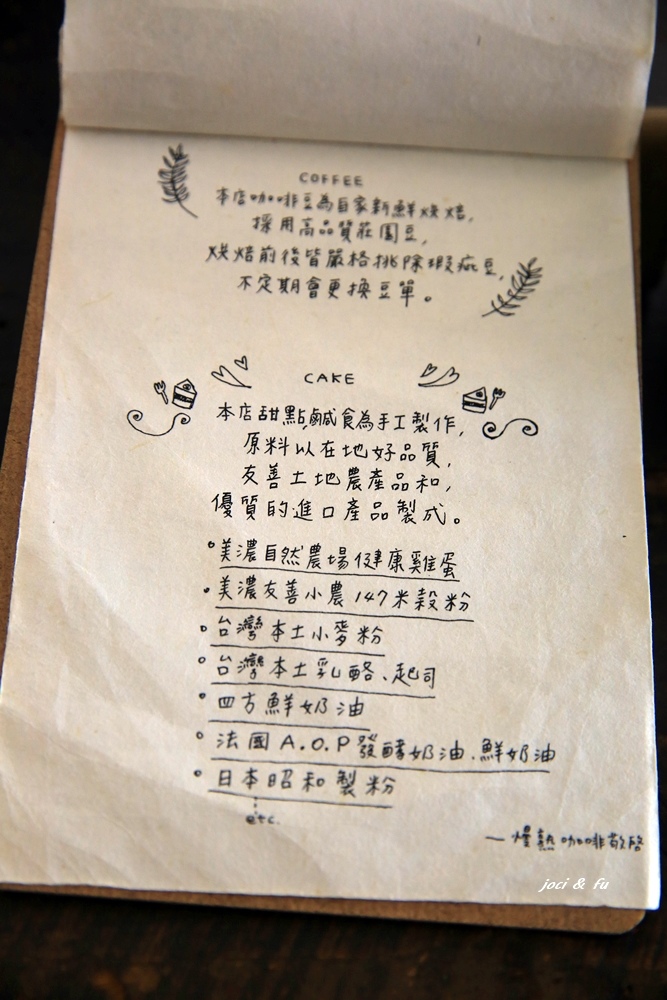 COFFEE
本店咖啡豆為自家新鮮烘焙,
採用高品質莊園豆,
烘焙前後皆嚴格挑除瑕疵豆,
不定期會更換豆單。
CAKE
本店甜點鹹食為手工製作,
原料以在地好品質,
友善土地農產品和,
優質的進口產品製成。
•美濃自然農場健康雞蛋
•美濃友善小農147米穀粉
•台灣本土小麥粉
•台灣本土乳酪、起司
•四方鮮奶油
•法國A.O.P發酵奶油、鮮奶油
•日本昭和製粉
etc.
—熳熱咖啡敬啓
joci & fu